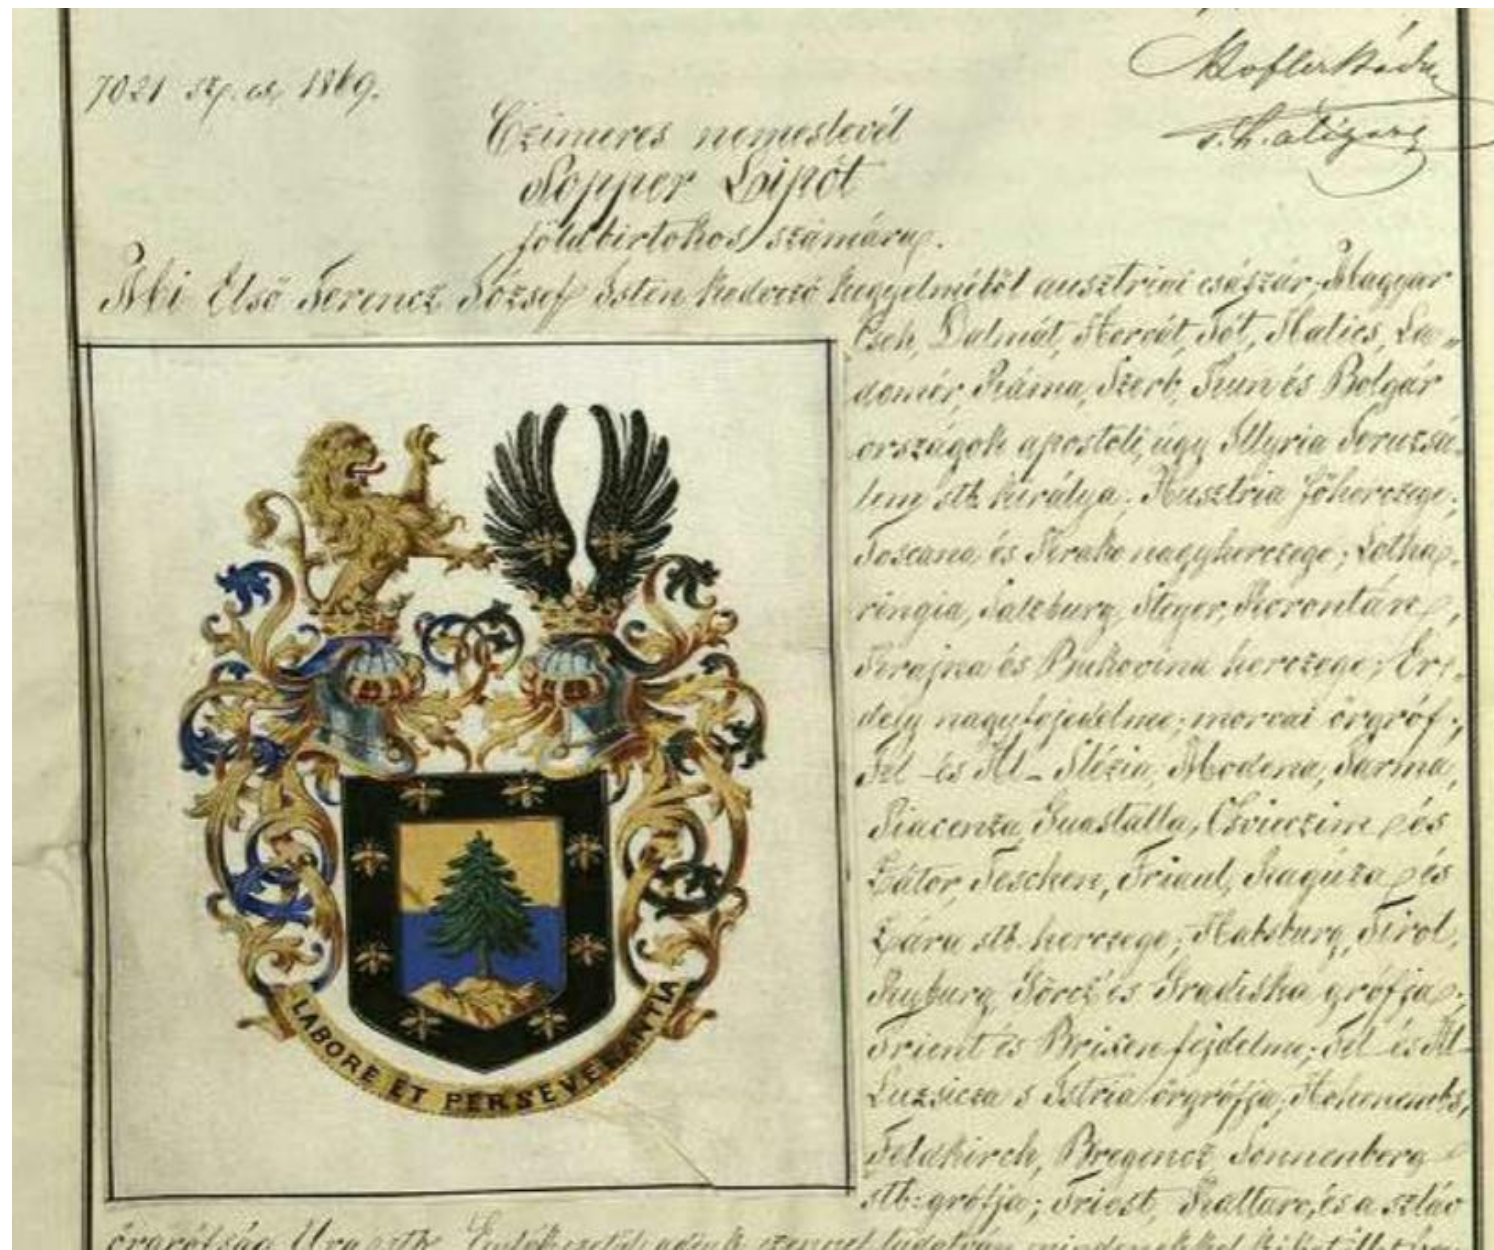 7021 sz. 1869.
Czimeres nemeslevél
Popper Lipót
földbirtokos számára.
Mi Első Ferencz József Isten kedvező kegyelméből ausztriai császár, Magyar
Cseh, Dalmát, Horvát, Tót, Halics, La-
domér, Ráma, Szerb, Kun és Bolgár
országok apostoli, úgy Illyria Jeruzsá-
lem stb. királya. Ausztria főherczege;
Toscana és Krako nagyherczege; Lotha-
ringia, Salzburg, Steyer, Korontán,
Krajna és Bukovina herczege; Er-
dély nagyfejedelme; morvai őrgróf;
Fel- és Al- Slézia, Modena, Parma,
Piacenza, Guastalla, Osvieczim és
Zátor, Teschen, Friaul, Ragúza és
Zára stb. herczege; Habsburg, Tirol,
Kyburg, Görcz és Gradiska grófja;
Trient és Brixen fejdelme; Fel és Al-
Luzsicza s Istria őrgrófja; Hohenembs,
Feldkirch, Bregencz, Sonnenberg
stb. grófja; Triest, Kattaro, és a szláv
őrgrófság Ura stb.
LABORE ET PERSEVERANTIA